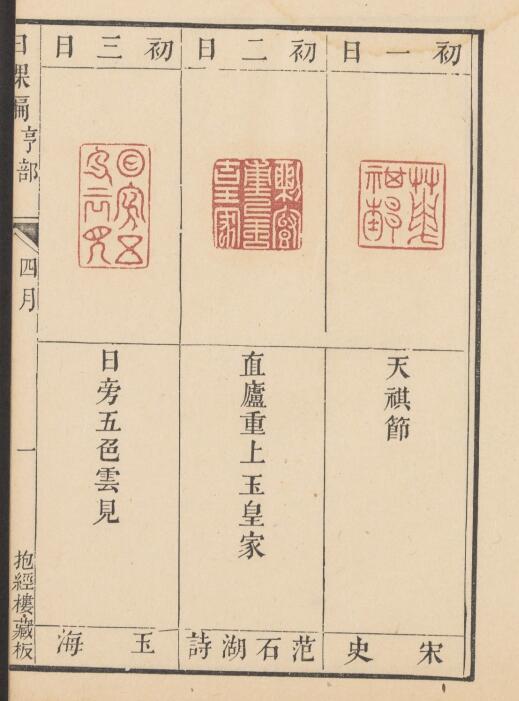 初一日
天祺節
宋史
初二日
直廬重上玉皇家
范石湖詩
初三日
日旁五色雲見
玉海
日課編亨部
四月
一
抱經樓藏板